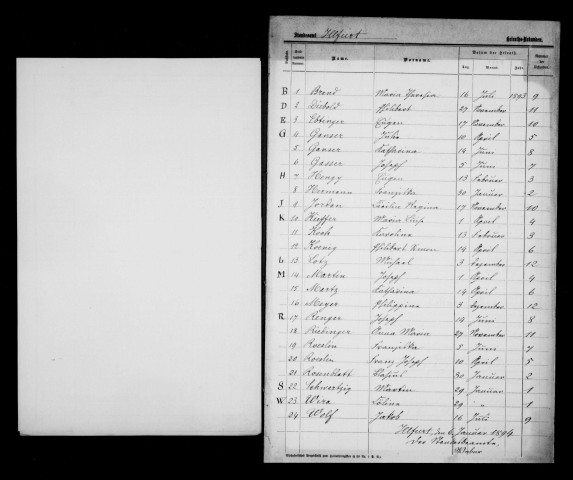 Standesamt Illfurt Heiraths-Urkunden.
Name. Vorname. Datum der Heirath Tag. Monat. Jahr.
B 1 Brand Maria 16 Juli 1893 9
D 2 Diebold Philibert 27 November 11
E 3 Ebtinger Eugen 17 November 10
G 4 Ganser Julie 10 April 5
5 Ganser Katharina 14 Juni 8
6 Gasser Joseph 5 Juni 7
H 7 Hengy Eugen 13 Februar 3
8 Hermann Franziska 30 Januar 2
J 9 Jordan Regina 17 November 10
K 10 Kieffer Maria 1 April 4
11 Koch Karolina 13 Februar 3
12 Koenig Philibert 14 April 6
L 13 Lotz Michael 3 Dezember 12
M 14 Martin Joseph 1 April 4
15 Martz Katharina 14 April 6
16 Meyer Philippina 3 Dezember 12
R 17 Renger Joseph 14 Juni 8
18 Riebinger Anna Maria 27 November 11
19 Rosslin Franziska 5 Juni 7
20 Rosslin Franz Joseph 10 April 5
21 Rosenblatt 30 Januar 2
S 22 Schwertzig Martin 29 Januar 1
W 23 Wira 29 " 1
24 Wolf Jakob 16 Juli 9
Illfurt, den 6 Januar 1894
Der Standesbeamte